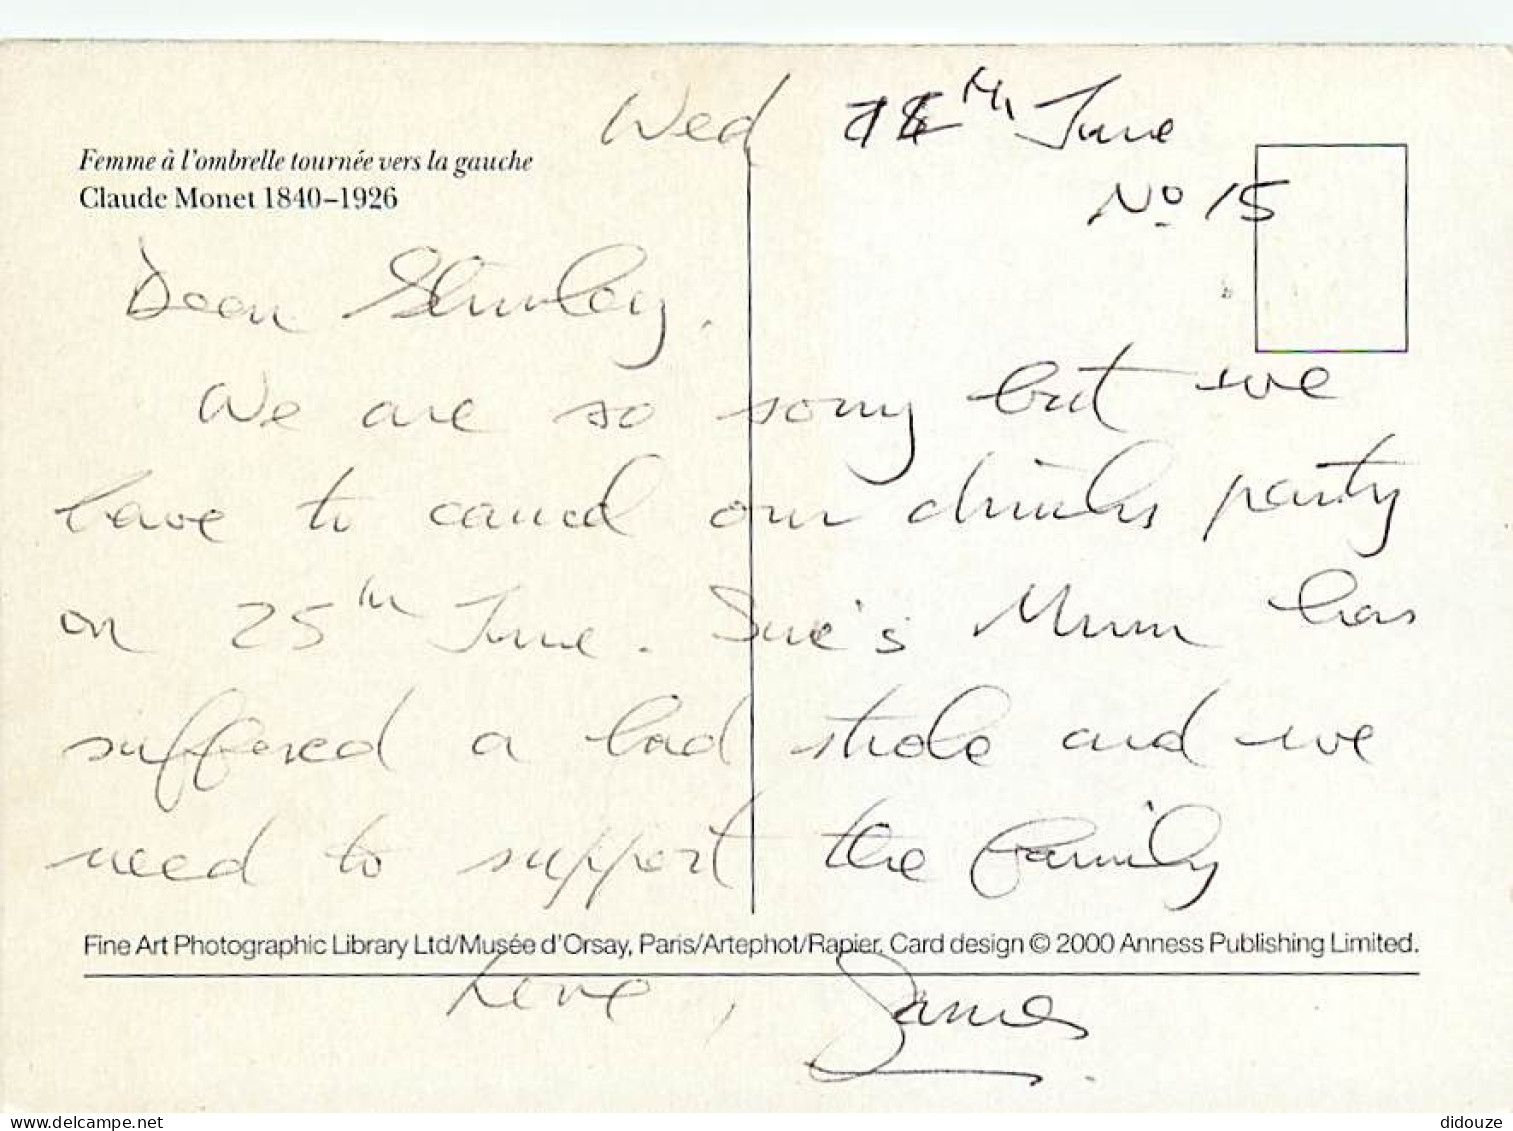 Wed th June
No 15
Femme à l'ombrelle tournée vers la gauche
Claude Monet 1840–1926
Dear Shirley,
We are so sorry but we
have to cancel our drinks party
on 25th June. Sue's Mum has
suffered a bad stroke and we
need to support the family
Fine Art Photographic Library Ltd/Musée d'Orsay, Paris/Artephot/Rapier. Card design © 2000 Anness Publishing Limited.
Love, James.
delcampe.net
didouze